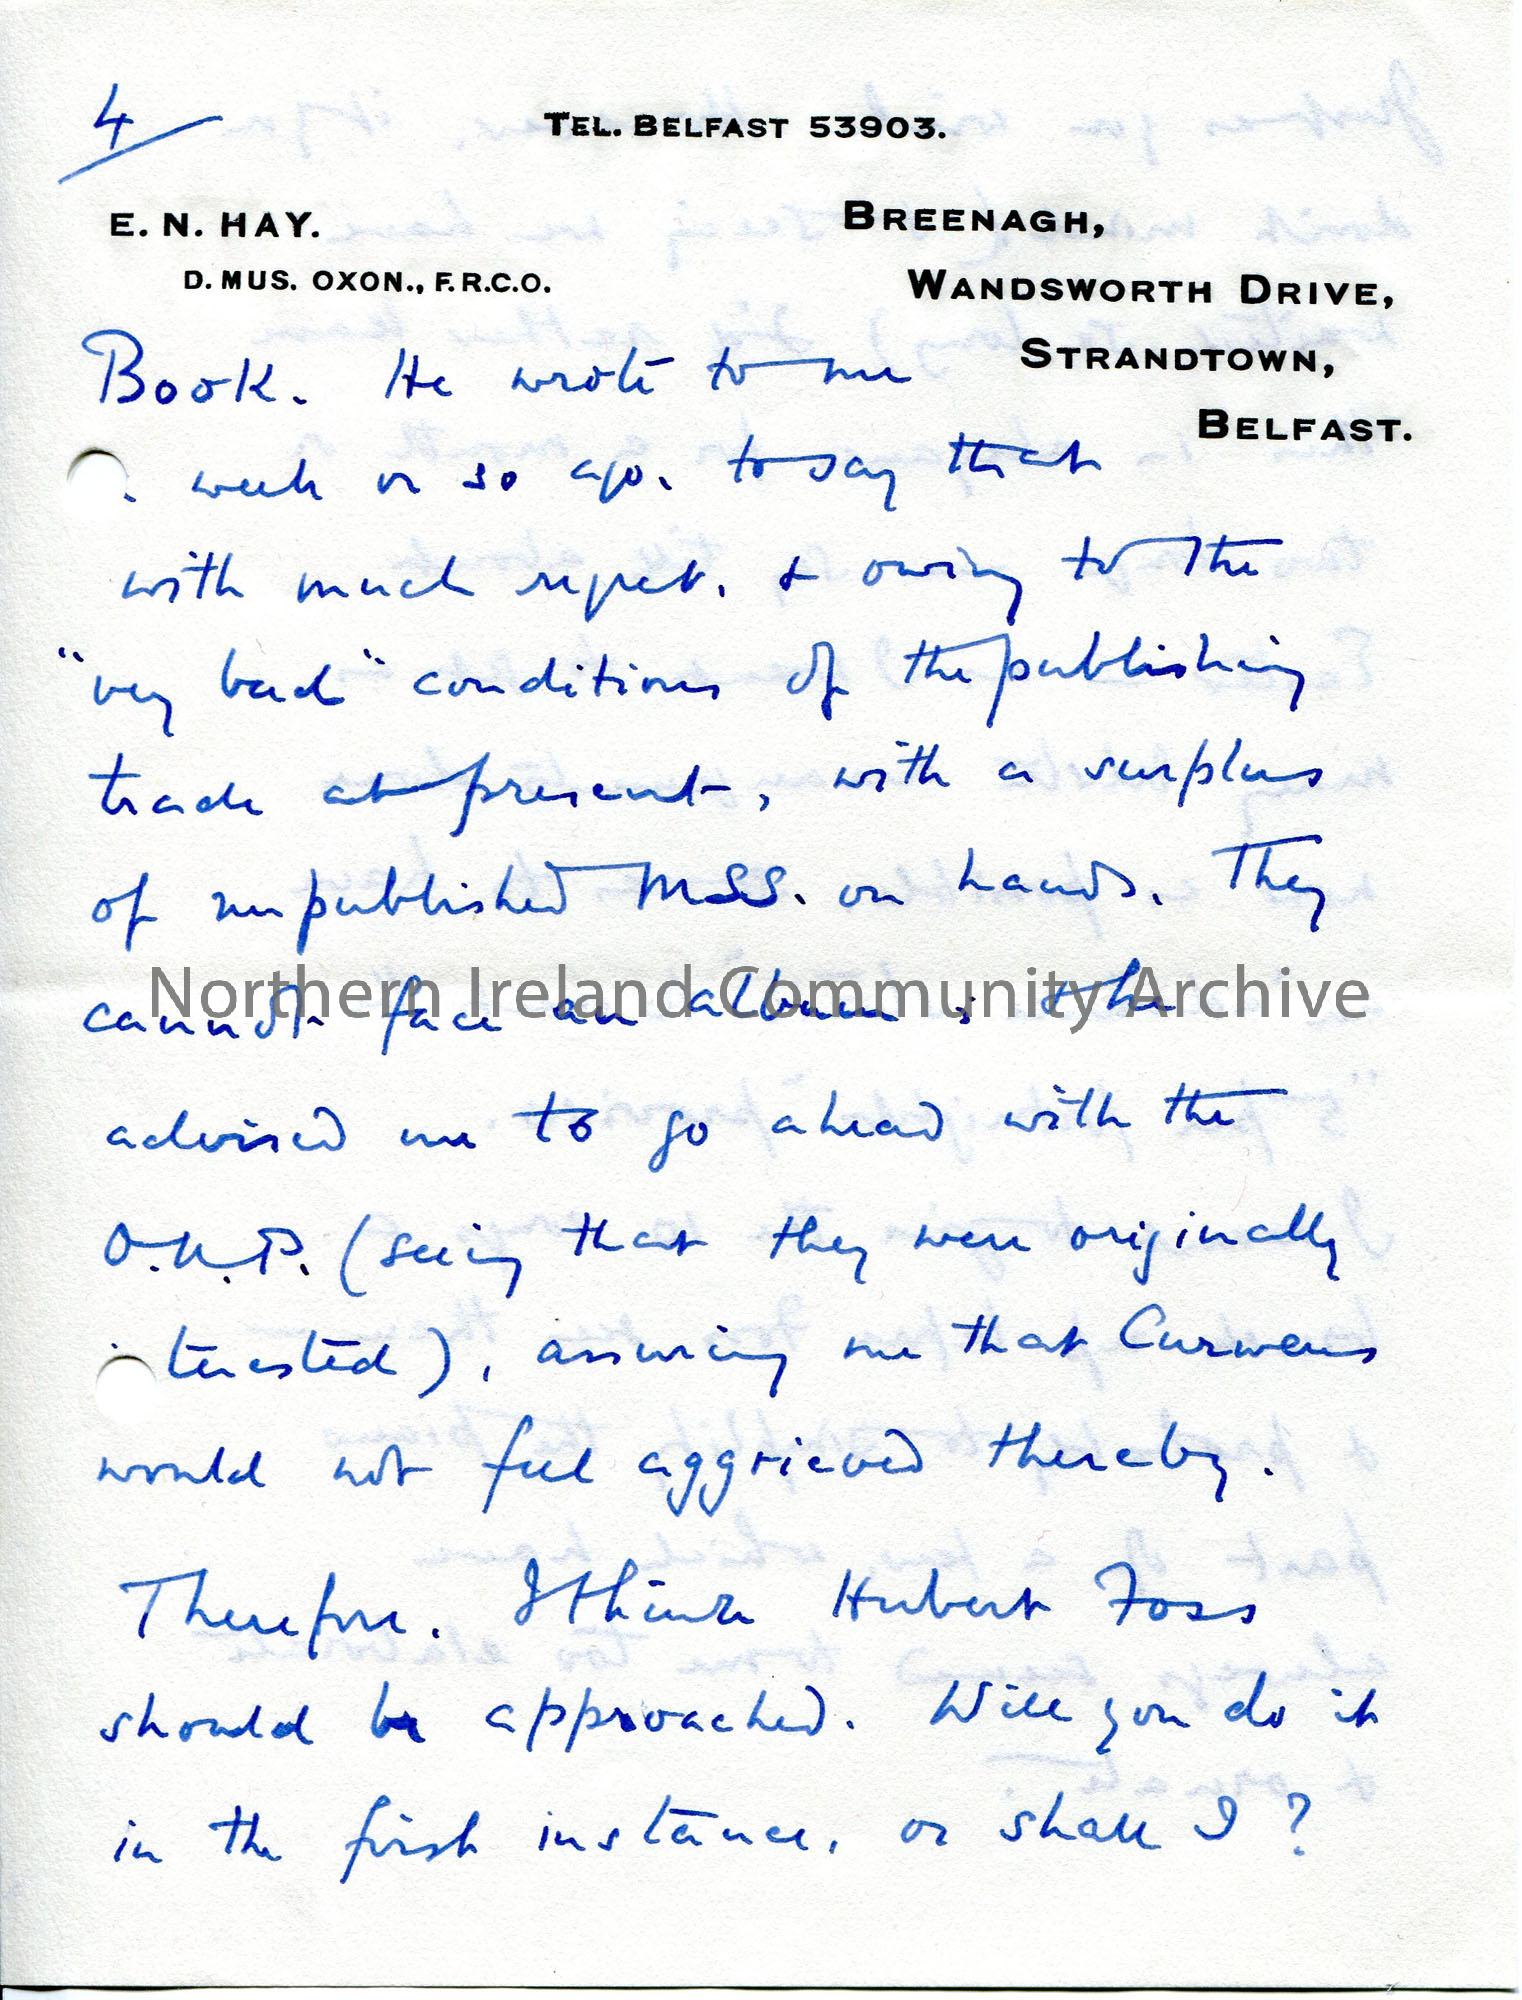 4
TEL. BELFAST 53903.
E. N. HAY.
D. MUS. OXON., F.R.C.O.
BREENAGH,
WANDSWORTH DRIVE,
STRANDTOWN,
BELFAST.
Book. He wrote to me
week or so ago, to say that
with much regret, & owing to the
"very bad" conditions of the publishing
trade at present, with a surplus
of unpublished MSS. on hands. They
cannot face an album; & he
advised me to go ahead with the
O.U.P. (seeing that they were originally
interested), assuring me that Curwens
would not feel aggrieved thereby.
Therefore, I think Hubert Foss
should be approached. Will you do it
in the first instance, or shall I?
Northern Ireland Community Archive